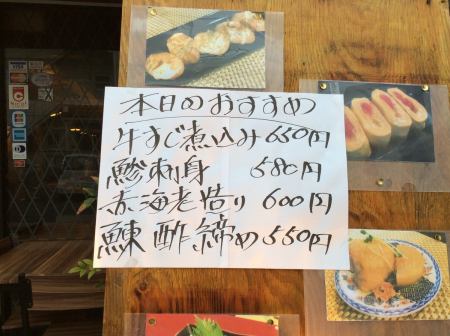 VISA
本日のおすすめ
牛すじ煮込み 650円
鯵刺身 580円
赤海老造り 600円
鰊酢締め 550円